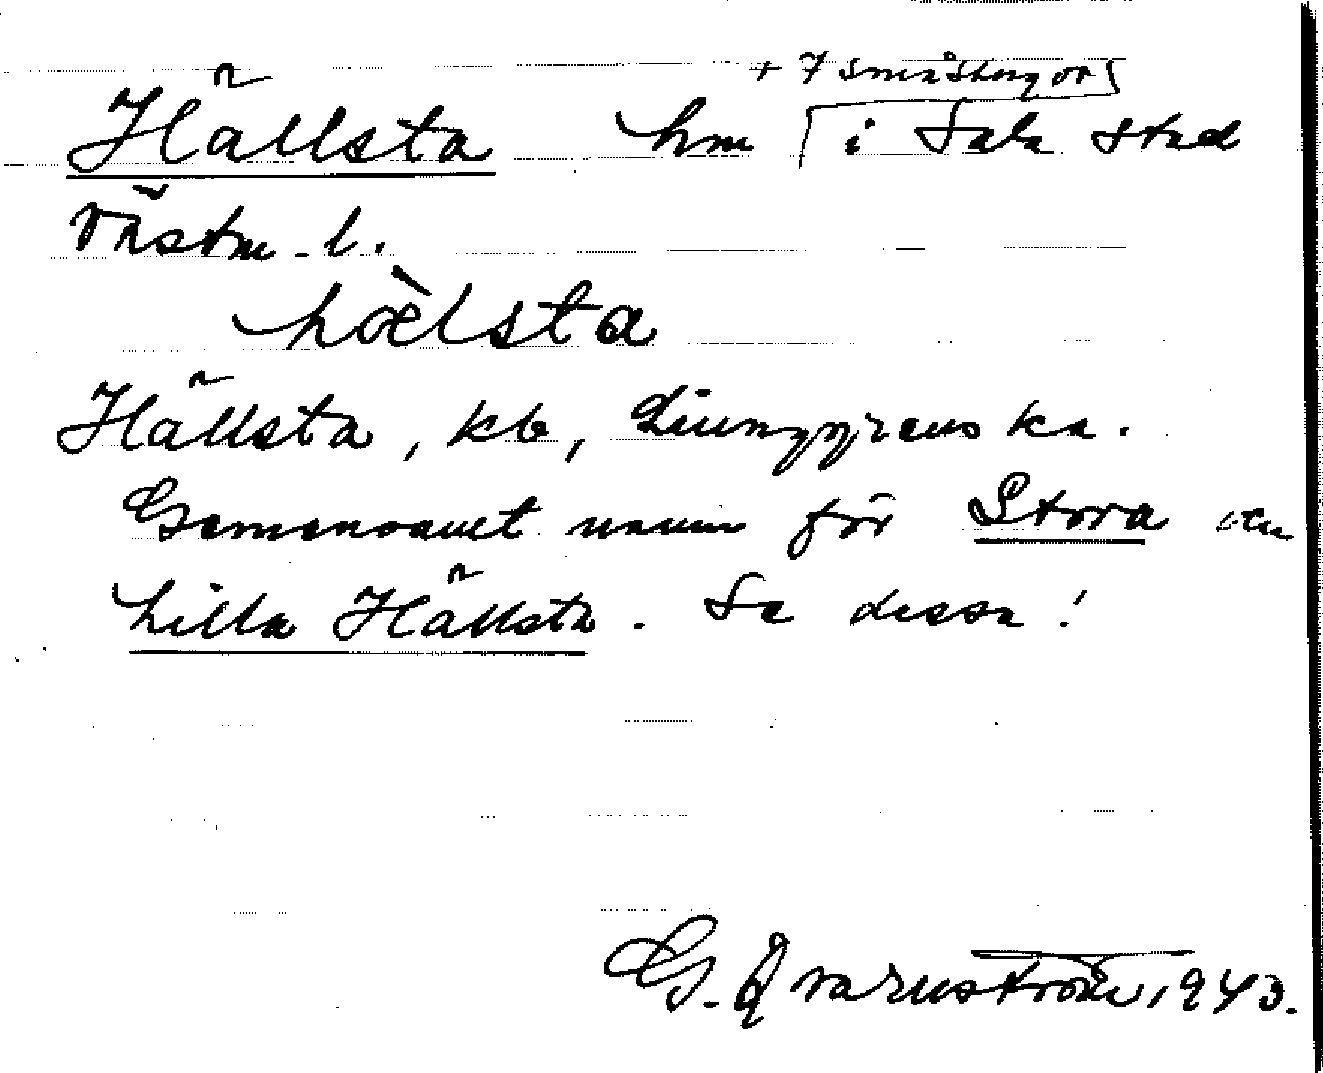 + 7 småstugor
Hällsta hm i Sala stad
Västm. l.
hæ̀lsta
Hällsta, kb, Ljunggrenska.
Gemensamt namn för Stora och
Lilla Hällsta. Se dessa!
G. Qvarnström, 1943.